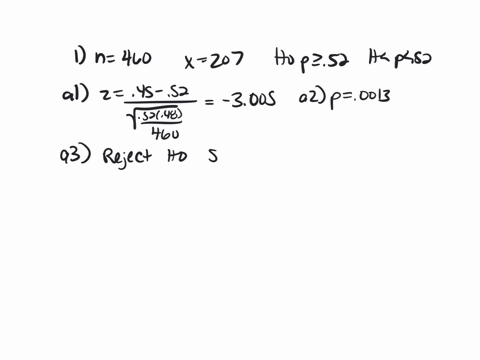 1) n=460 x=207 Ho p≥.52 H< p<.52
a1) z = .45-.52 / √(.52(.48)/460) = -3.005 a2) p=.0013
a3) Reject Ho S